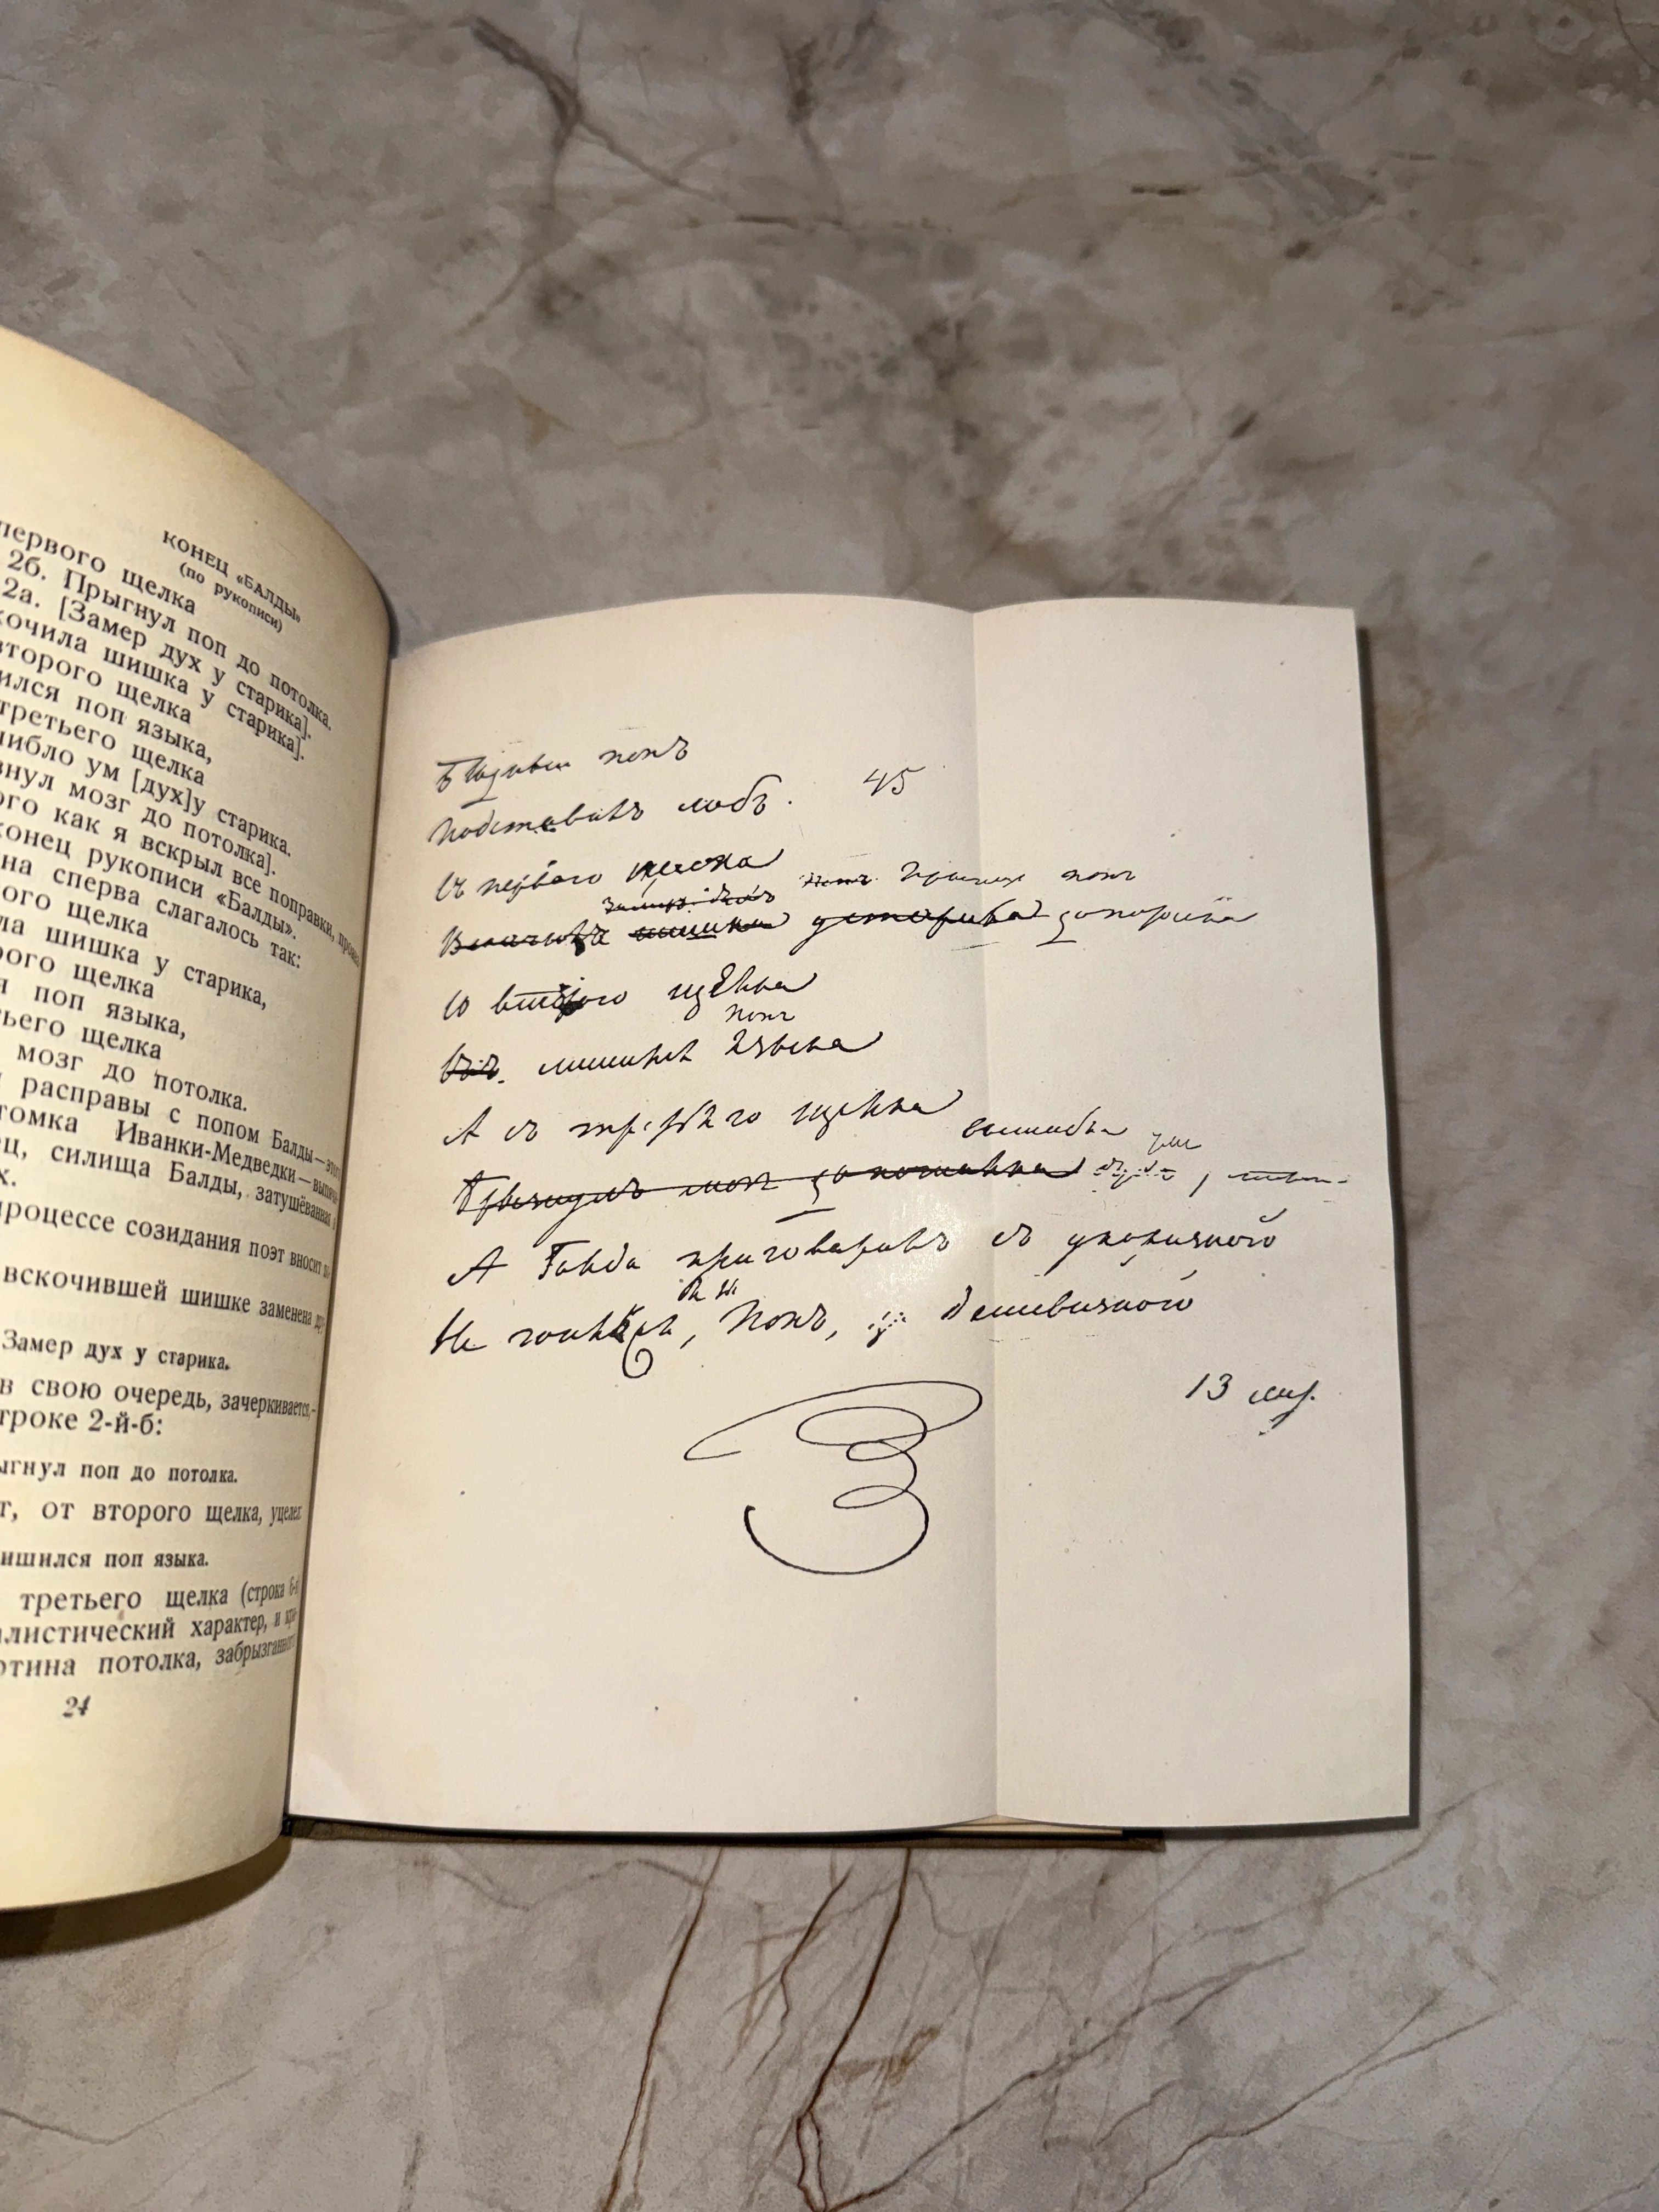 КОНЕЦ «БАЛДЫ»
(по рукописи)
первого щелка
2б. Прыгнул поп до потолка.
2а. [Замер дух у старика].
кочила шишка у старика].
второго щелка
ился поп языка,
третьего щелка
шибло ум [дух] у старика.
знул мозг до потолка].
ого как я вскрыл все поправки,
конец рукописи «Балды».
на сперва слагалось так:
ого щелка
ла шишка у старика,
рого щелка
я поп языка,
тьего щелка
мозг до потолка.
расправы с попом Балды—
томка Иванки-Медведки—
ец, силища Балды, затушёванная
х.
процессе созидания поэт вносит
вскочившей шишке заменена
Замер дух у старика.
в свою очередь, зачеркивается,
троке 2-й-б:
ыгнул поп до потолка.
т, от второго щелка, уцелел
ишился поп языка.
третьего щелка (строка 6-я
алистический характер, и
отина потолка, забрызганного
24
Бѣдный попъ
Подставилъ лобъ. 45
Съ перваго щелка
Замеръ духъ попъ Прыгнул попъ
Вскочила шишка у старика до потолка
Со втораго щелка
попъ
лишился языка
А съ третьяго щелка
вышибло умъ
Брызнулъ мозг до потолка духъ у
А Балда приговаривалъ съ укоризной
бы ты
Не гонялся, Попъ, за дешевизной
13 сен.